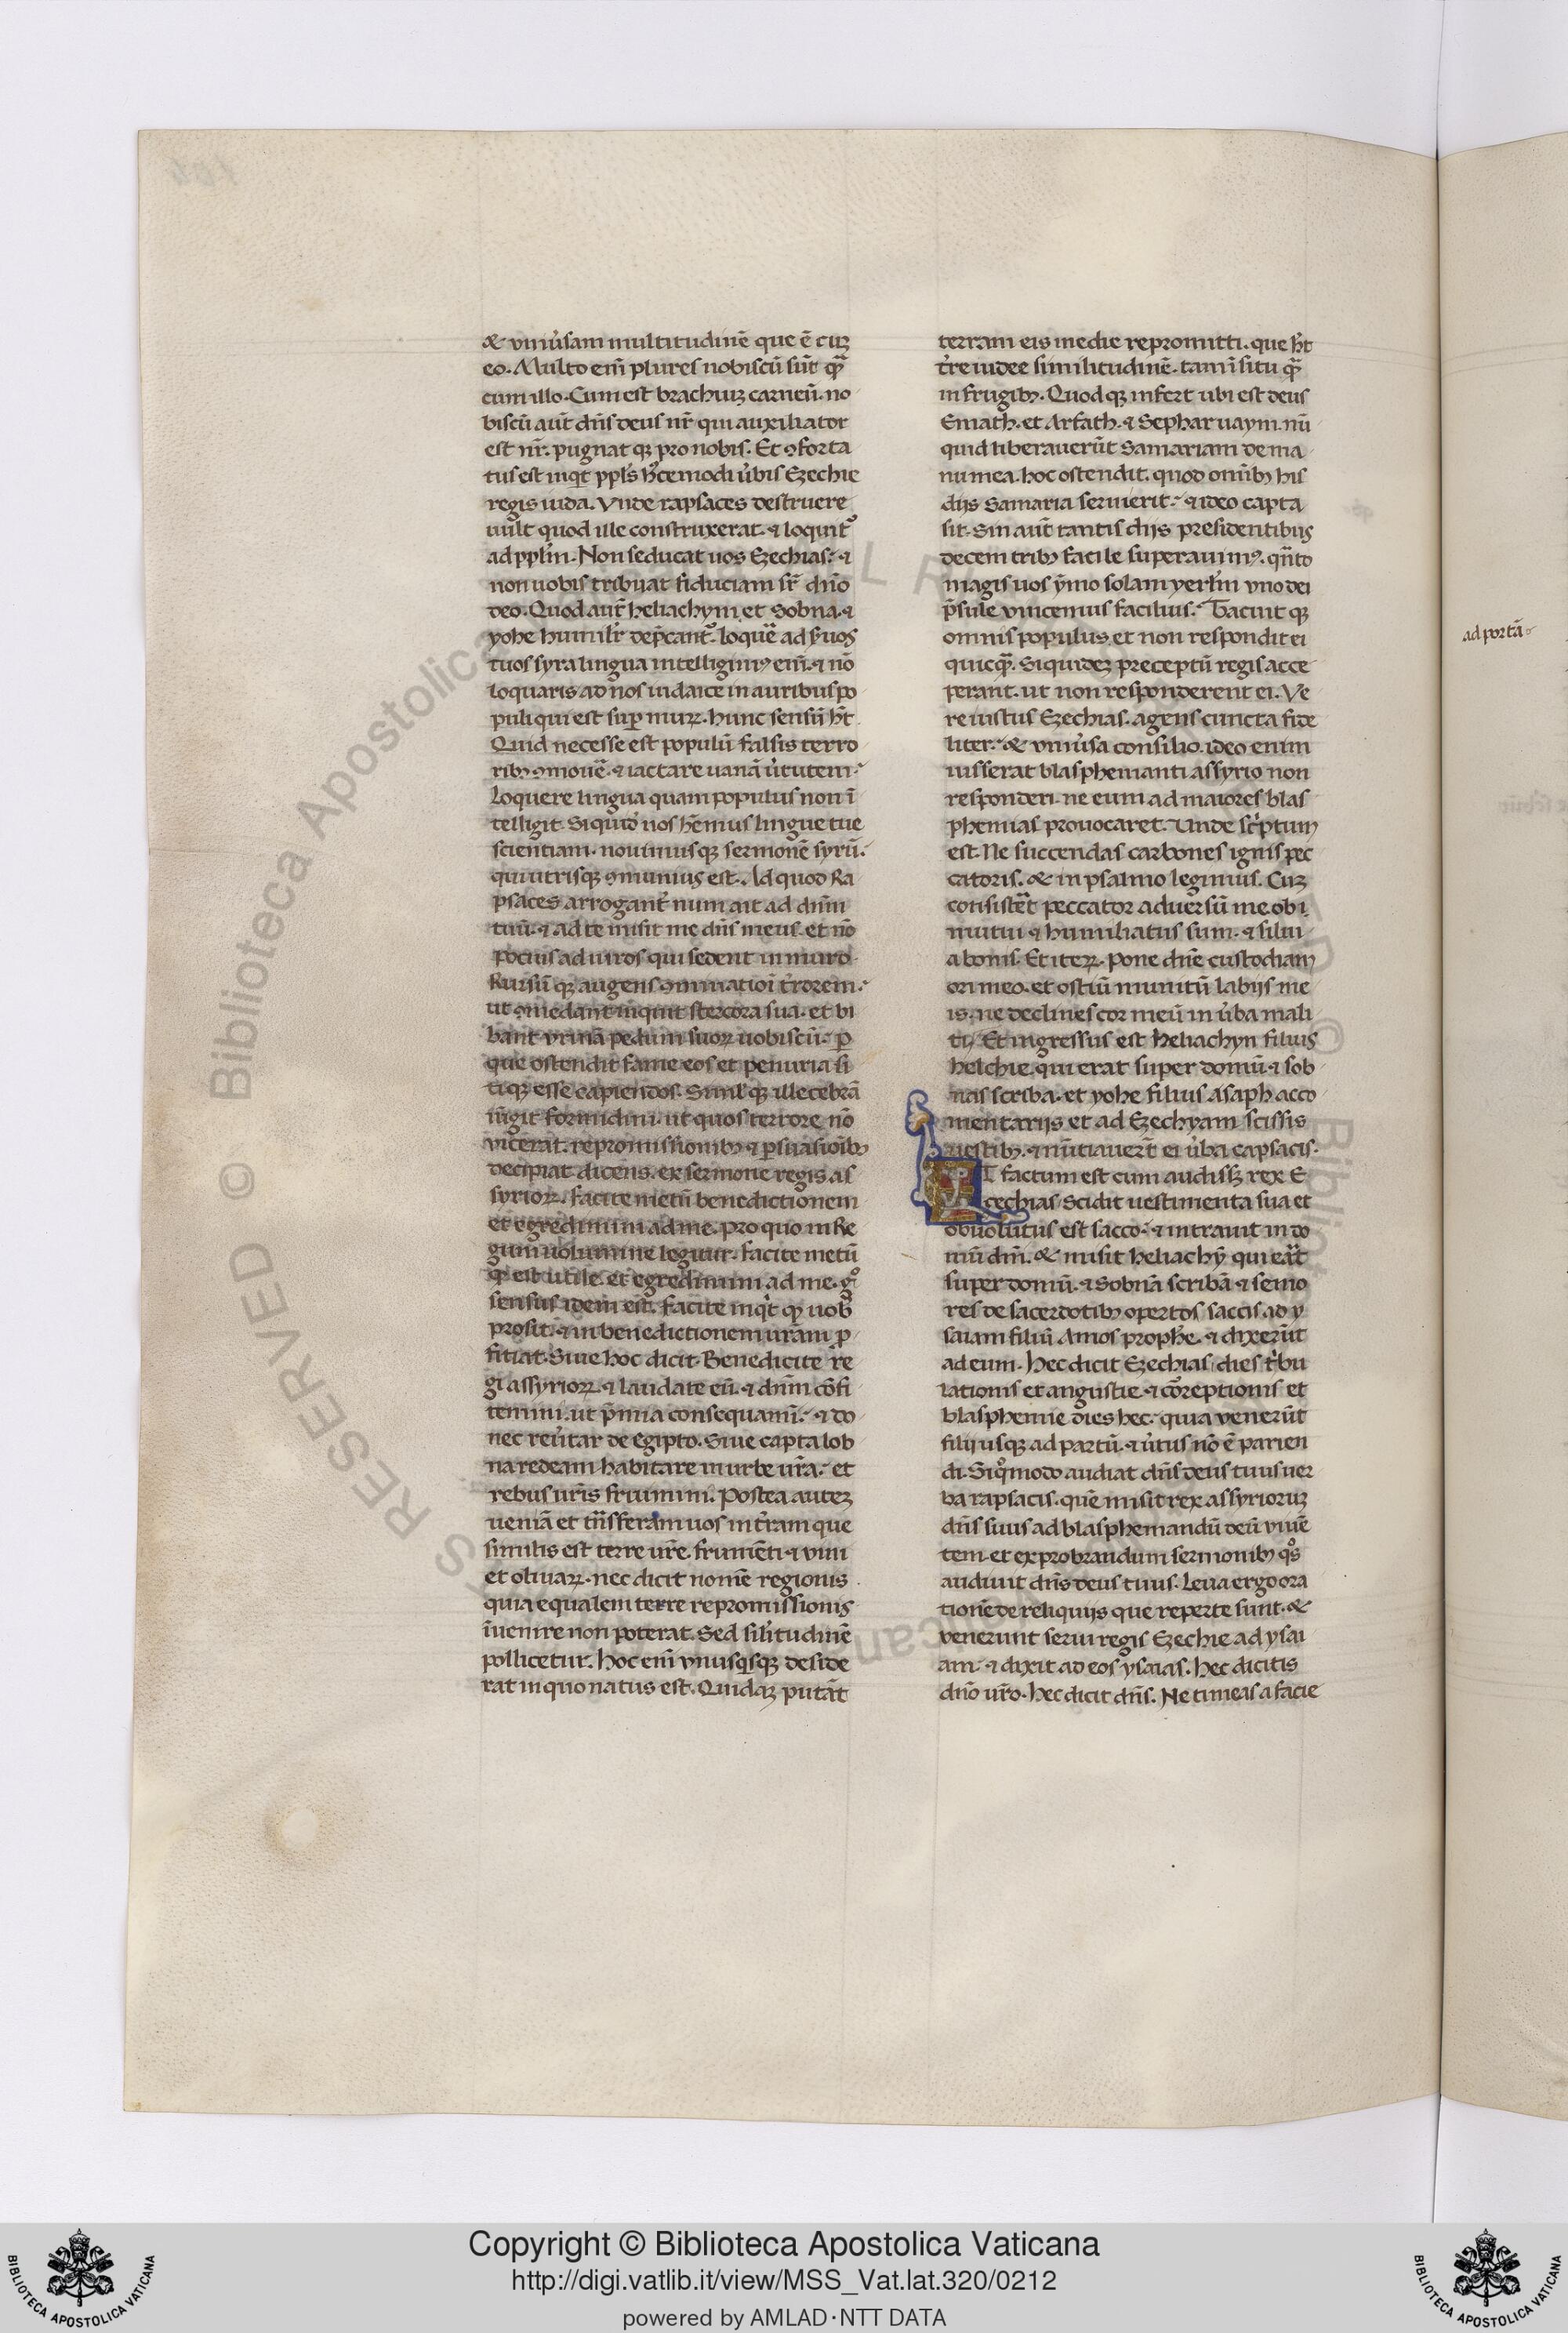 & vniu̓sam multitudinẽ que ẽ cuꝫ
eo. Multo em̃ plures nobiscũ sũt qᷓ
cum illo. Cum est brachiuꝫ carneũ. no
biscũ aũt dñs deus nr̃ qui auxiliator
est nr̃. pugnat qꝫ pro nobis. Et ꝯforta
tus est inqͥt ppl̓s hͨcemodi u̓bis Ezechie
regis iuda. Vnde rapsaces destruere
uult quod ille construxerat. ⁊ loquit᷑
ad ppl̓m. Non seducat uos Ezechias. ⁊
non uobis tribuat fiduciam sr̃ dño
deo. Quod aut̃ heliachym et Sobna. ⁊
yohe humilr̓ dep̃cant᷑. loquẽ ad s̓uos
tuos syra lingua intelligimꝰ em̃. ⁊ nõ
loquaris ad nos iudaice in auribus po
puli qui est suꝑ murꝝ. hunc sensũ hr̃t
Quid necesse est populũ falsis terro
ribꝫ ꝯmouẽ. ⁊ iactare uanã u̓tutem.
Loquere lingua quam populus non ĩ
telligit. Siquid̓ nos hẽmus lingue tue
scientiam. nouimus qꝫ sermonẽ syrũ.
qui utrisqꝫ ꝯmunius est. Ad quod Ra
psaces arrogant̓ num ait ad dñm
tuũ. ⁊ ad te misit me dñs meus. et nõ
pocius ad uiros qui sedent in muro.
Rursũ qꝫ augens ꝯminatioĩ t̓rorem.
ut ꝯmedant inquit stercora sua. et bi
bant vrinã pedum suoꝝ uobiscũ. ꝑ
que ostendit fame eos et penuria si
tiqꝫ esse capiendos. Siml̓ qꝫ illecebrã
iũgit formidini. ut quos terrore nõ
vicerat. repromissionibꝫ ⁊ ꝑsuasioĩbꝫ
decipiat dicens. ex sermone regis as
syrioꝝ. facite mecũ benedictionem
et egredimini ad me. Pro quo in Re
gum uolumine legitur. facite mecũ
qͩ est utile. et egredimini ad me. gͦ
sensus idem est. facite inqͥt qͩ uob̓
prosit. ⁊ in benedictionem ur̃am ꝓ
ficiat. Siue hoc dicit. Benedicite re
gi assyrioꝝ. ⁊ laudate eũ. ⁊ dñm cõfi
temini. ut p̃mia consequamĩ. ⁊ do
nec reu̓tar de egipto. Siue capta lob
na redeam habitare in urbe ur̃a. et
rebus ur̃is fruimini. Postea auteꝫ
ueniã et tñsferam uos in t̓ram que
similis est terre ur̃e. frumẽti ⁊ vini
et oliuaꝝ. nec dicit nomẽ regionis
quia equalem terre repromissionis
ĩuenire non poterat. Sed sil̓itudinẽ
pollicetur. hoc em̃ vnusqͥsqꝫ deside
rat in quo natus est. Quidaꝫ putãt
terram eis medie repromitti. que hr̃t
t̓re iudee similitudinẽ. tam ĩ situ qᷓ
in frugibꝫ. Quod qꝫ infert ubi est deus
Emath. et Arfath. ⁊ Sepharuaym. nũ
quid liberauerũt Samariam de ma
nu mea. hoc ostendit. quod omĩbꝫ his
diis Samaria seruierit. ⁊ ideo capta
sit. Sin aut̃ tantis diis presidentibus
decem tribꝫ facile superauimꝰ. qñto
magis uos ỹmo solam yerl̓m vno dei
p̃sule vincemus facilius. Tacuit qꝫ
omnis populus et non respondit ei
quicqᷓ. Siquideꝫ preceptũ regis acce
perant. ut non responderent ei. Ve
re iustus Ezechias. agens cuncta fide
liter. & vniu̓sa consilio. ideo enim
iusserat blasphemanti assyrio non
responderi. ne eum ad maiores blas
phemias prouocaret. Unde sc̓ptum
est. Ne succendas carbones ignis pec
catoris. & in psalmo legimus. Cuꝫ
consistẽt peccator aduersũ me. ob
mutui ⁊ humiliatus sum. ⁊ silui
a bonis. Et iteꝝ. Pone dñe custodiam
ori meo. et ostiũ munitũ labiis me
is. ne declines cor meũ in u̓ba mali
ti. Et ingressus est heliachyn filius
helchie. qui erat super domũ ⁊ sob
nas scriba. et yohe filius asaph acco
mentariis et ad Ezechyam scissis
uestibꝫ. ⁊ nũtiauer̃t ei u̓ba capsacis.
ET factum est cum audissꝫ rex E
cechias. Scidit uestimenta sua et
obuolutus est sacco. ⁊ intrauit in do
mũ dñi. & misit heliachỹ qui erat
super domũ. ⁊ Sobnã scribã ⁊ senio
res de sacerdotibꝫ opertos saccis ad y
saiam filiũ Amos prophe. ⁊ dixerũt
ad eum. hec dicit Ezechias dies t̓bu
lationis et angustie. ⁊ cor̃eptionis et
blasphemie dies hec. quia venerũt
filii usqꝫ ad partũ. ⁊ u̓tus nõ ẽ parien
di. Siqͦmodo audiat dñs deus tuus uer
ba rapsacis. quẽ misit rex assyrioruꝫ
dñs suus ad blasphemandũ deũ viuẽ
tem. et exprobrandum sermonibꝫ qͦs
audiuit dñs deus tuus. leua ergo ora
tionẽ de reliquiis que reperte sunt. &
venerunt serui regis Ezechie ad ysai
am. ⁊ dixit ad eos ysaias. hec dicitis
dño ur̃o. hec dicit dñs. Ne timeas a facie
ad portã
Copyright © Biblioteca Apostolica Vaticana
http://digi.vatlib.it/view/MSS_Vat.lat.320/0212
powered by AMLAD·NTT DATA